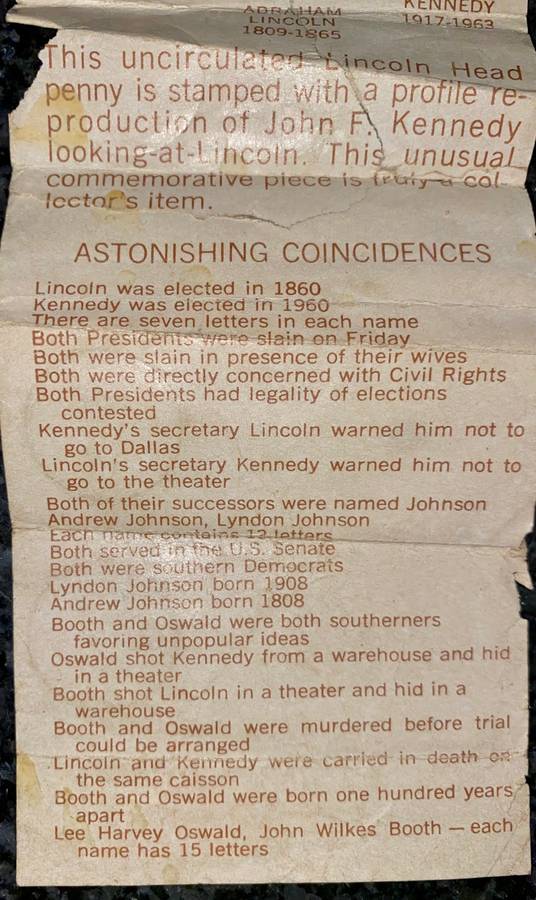 ABRAHAM
LINCOLN
1809-1865
KENNEDY
1917-1963
This uncirculated Lincoln Head
penny is stamped with a profile re-
production of John F. Kennedy
looking-at-Lincoln. This unusual
commemorative piece is truly a col-
lector's item.
ASTONISHING COINCIDENCES
Lincoln was elected in 1860
Kennedy was elected in 1960
There are seven letters in each name
Both Presidents were slain on Friday
Both were slain in presence of their wives
Both were directly concerned with Civil Rights
Both Presidents had legality of elections
contested
Kennedy's secretary Lincoln warned him not to
go to Dallas
Lincoln's secretary Kennedy warned him not to
go to the theater
Both of their successors were named Johnson
Andrew Johnson, Lyndon Johnson
Each name contains 13 letters
Both served in the U.S. Senate
Both were southern Democrats
Lyndon Johnson born 1908
Andrew Johnson born 1808
Booth and Oswald were both southerners
favoring unpopular ideas
Oswald shot Kennedy from a warehouse and hid
in a theater
Booth shot Lincoln in a theater and hid in a
warehouse
Booth and Oswald were murdered before trial
could be arranged
Lincoln and Kennedy were carried in death on
the same caisson
Booth and Oswald were born one hundred years
apart
Lee Harvey Oswald, John Wilkes Booth — each
name has 15 letters